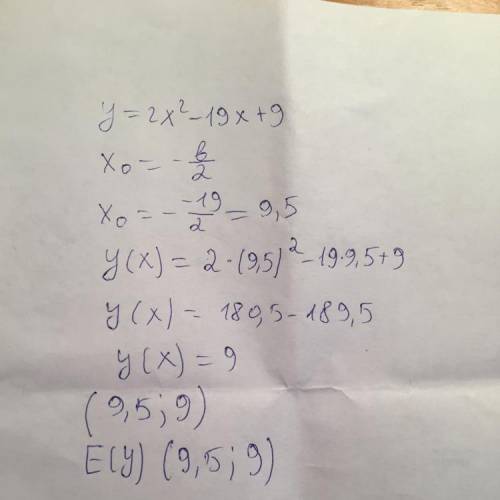 y = 2x² - 19x + 9
x₀ = - в/2
x₀ = - -19/2 = 9,5
y(x) = 2·(9,5)² - 19·9,5 + 9
y(x) = 180,5 - 189,5
y(x) = 9
(9,5; 9)
E(y) (9,5; 9)